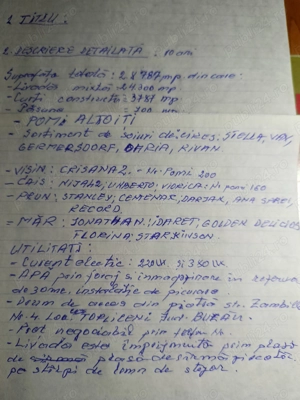 1. TITLU:
2. DESCRIERE DETAILATĂ:
Suprafața totală: 28787 mp din care:
- Livada mixtă - 24300 mp
- Curți construcții: 3787 mp
- Pășune 700 mp
- POMI ALTOIȚI
- Sortiment de soiuri de cireș, STELLA, VAN,
GERMERSDORF, DARIA, RIVAN.
- VIȘIN: CRIȘANA 2. - Nr. Pomi 200
- CAIS: NJA42, UMBERTO, VIORICA: Nr pomi 160
- PRUN: STANLEY, CEMENAK, ANA SPATH,
RECORD
- MĂR: JONATHAN, IDARET, GOLDEN, DELICIOS
FLORINA, STARKINSON.
UTILITĂȚI:
- Curent electic: 220V. și 380V.
- APĂ prin foraj și înmagazinare în
de 30mc. instalație de picurare
- Drum de acces din piatră str. Zambile
Nr. 4. Loc. ȚOPLICENI Jud: BUZĂU.
- Preț negociabil prin
- Livada este împrejmuită prin plasă
plasă de sîrmă
pe stîlpi de lemn de stejar.